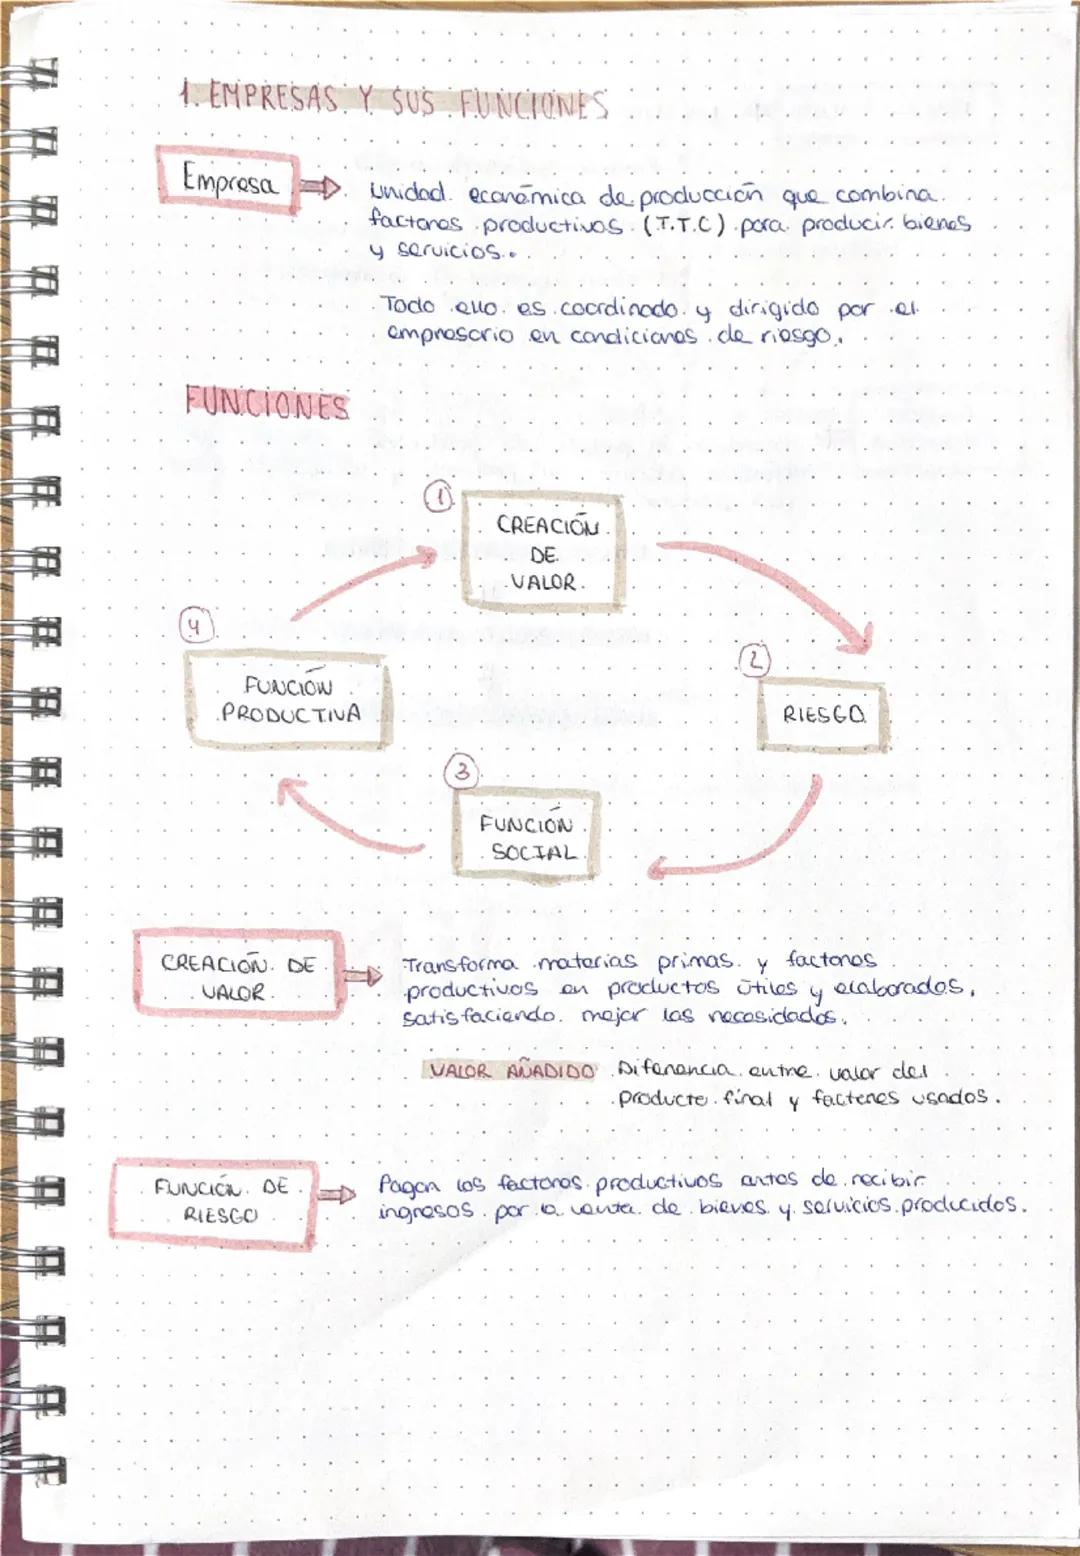 1. EMPRESAS Y SUS FUNCIONES
Empresa
Unidad económica de producción que combina
factores productivos (T.T.C) para producir bienes
y servicios.
Todo ello es coordinado y dirigido por el
empresario en condiciones de riesgo.
FUNCIONES
1
CREACIÓN
DE
VALOR
4
FUNCIÓN
PRODUCTIVA
2
RIESGO
3
FUNCIÓN
SOCIAL
CREACIÓN DE
VALOR
Transforma materias primas y factores
productivos en productos útiles y elaborados,
satisfaciendo mejor las necesidades.
VALOR AÑADIDO Diferencia entre valor del
producto final y factores usados.
FUNCIÓN DE
RIESGO
Pagan los factores productivos antes de recibir
ingresos por la venta de bienes y servicios producidos.